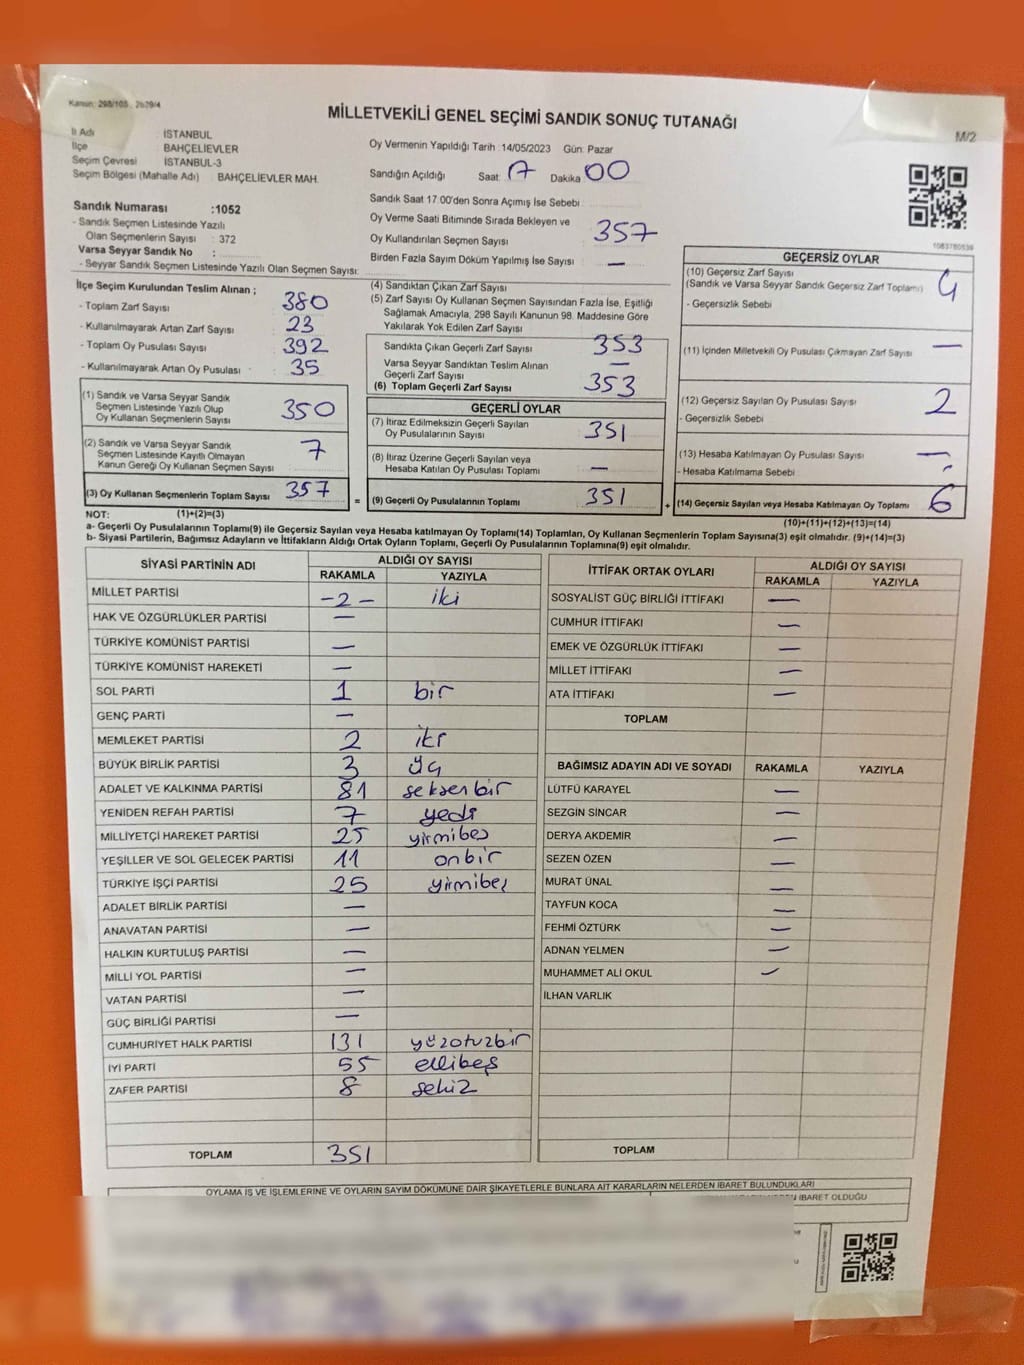 Kanun: 298/105 , 2839/4
MİLLETVEKİLİ GENEL SEÇİMİ SANDIK SONUÇ TUTANAĞI
M/2
İl Adı : İSTANBUL
İlçe BAHÇELİEVLER
Seçim Çevresi İSTANBUL-3
Seçim Bölgesi (Mahalle Adı) : BAHÇELİEVLER MAH.
Sandık Numarası :1052
- Sandık Seçmen Listesinde Yazılı
Olan Seçmenlerin Sayısı : 372
Varsa Seyyar Sandık No :
- Seyyar Sandık Seçmen Listesinde Yazılı Olan Seçmen Sayısı:
Oy Vermenin Yapıldığı Tarih :14/05/2023 Gün: Pazar
Sandığın Açıldığı Saat: 17 Dakika 00
Sandık Saat 17.00'den Sonra Açımış İse Sebebi :
Oy Verme Saati Bitiminde Sırada Bekleyen ve
Oy Kullandırılan Seçmen Sayısı 357
Birden Fazla Sayım Döküm Yapılmış İse Sayısı —
1083780539
İlçe Seçim Kurulundan Teslim Alınan ;
- Toplam Zarf Sayısı : 380
- Kullanılmayarak Artan Zarf Sayısı : 23
- Toplam Oy Pusulası Sayısı : 392
- Kullanılmayarak Artan Oy Pusulası : 35
(1) Sandık ve Varsa Seyyar Sandık
Seçmen Listesinde Yazılı Olup
Oy Kullanan Seçmenlerin Sayısı 350
(2) Sandık ve Varsa Seyyar Sandık
Seçmen Listesinde Kayıtlı Olmayan
Kanun Gereği Oy Kullanan Seçmen Sayısı 7
(3) Oy Kullanan Seçmenlerin Toplam Sayısı 357
(1)+(2)=(3)
(4) Sandıktan Çıkan Zarf Sayısı
(5) Zarf Sayısı Oy Kullanan Seçmen Sayısından Fazla İse, Eşitliği
Sağlamak Amacıyla, 298 Sayılı Kanunun 98. Maddesine Göre
Yakılarak Yok Edilen Zarf Sayısı
Sandıkta Çıkan Geçerli Zarf Sayısı 353
Varsa Seyyar Sandıktan Teslim Alınan
Geçerli Zarf Sayısı —
(6) Toplam Geçerli Zarf Sayısı 353
GEÇERLİ OYLAR
(7) İtiraz Edilmeksizin Geçerli Sayılan
Oy Pusulalarının Sayısı 351
(8) İtiraz Üzerine Geçerli Sayılan veya
Hesaba Katılan Oy Pusulası Toplamı —
= (9) Geçerli Oy Pusulalarının Toplamı 351
GEÇERSİZ OYLAR
(10) Geçersiz Zarf Sayısı
(Sandık ve Varsa Seyyar Sandık Geçersiz Zarf Toplamı) 4
- Geçersizlik Sebebi
(11) İçinden Milletvekili Oy Pusulası Çıkmayan Zarf Sayısı —
(12) Geçersiz Sayılan Oy Pusulası Sayısı 2
- Geçersizlik Sebebi
(13) Hesaba Katılmayan Oy Pusulası Sayısı —
- Hesaba Katılmama Sebebi
+ (14) Geçersiz Sayılan veya Hesaba Katılmayan Oy Toplamı 6
(10)+(11)+(12)+(13)=(14)
NOT:
a- Geçerli Oy Pusulalarının Toplamı(9) ile Geçersiz Sayılan veya Hesaba katılmayan Oy Toplamı(14) Toplamları, Oy Kullanan Seçmenlerin Toplam Sayısına(3) eşit olmalıdır. (9)+(14)=(3)
b- Siyasi Partilerin, Bağımsız Adayların ve İttifakların Aldığı Ortak Oyların Toplamı, Geçerli Oy Pusulalarının Toplamına(9) eşit olmalıdır.
SİYASİ PARTİNİN ADI ALDIĞI OY SAYISI
RAKAMLA YAZIYLA
MİLLET PARTİSİ -2- iki
HAK VE ÖZGÜRLÜKLER PARTİSİ —
TÜRKİYE KOMÜNİST PARTİSİ —
TÜRKİYE KOMÜNİST HAREKETİ —
SOL PARTİ 1 bir
GENÇ PARTİ —
MEMLEKET PARTİSİ 2 iki
BÜYÜK BİRLİK PARTİSİ 3 üç
ADALET VE KALKINMA PARTİSİ 81 seksenbir
YENİDEN REFAH PARTİSİ 7 yedi
MİLLİYETÇİ HAREKET PARTİSİ 25 yirmibeş
YEŞİLLER VE SOL GELECEK PARTİSİ 11 onbir
TÜRKİYE İŞÇİ PARTİSİ 25 yirmibeş
ADALET BİRLİK PARTİSİ —
ANAVATAN PARTİSİ —
HALKIN KURTULUŞ PARTİSİ —
MİLLİ YOL PARTİSİ —
VATAN PARTİSİ —
GÜÇ BİRLİĞİ PARTİSİ —
CUMHURİYET HALK PARTİSİ 131 yüzotuzbir
İYİ PARTİ 55 ellibeş
ZAFER PARTİSİ 8 sekiz
TOPLAM 351
İTTİFAK ORTAK OYLARI ALDIĞI OY SAYISI
RAKAMLA YAZIYLA
SOSYALİST GÜÇ BİRLİĞİ İTTİFAKI —
CUMHUR İTTİFAKI —
EMEK VE ÖZGÜRLÜK İTTİFAKI —
MİLLET İTTİFAKI —
ATA İTTİFAKI —
TOPLAM
BAĞIMSIZ ADAYIN ADI VE SOYADI RAKAMLA YAZIYLA
LÜTFÜ KARAYEL —
SEZGİN SİNCAR —
DERYA AKDEMİR —
SEZEN ÖZEN —
MURAT ÜNAL —
TAYFUN KOCA —
FEHMİ ÖZTÜRK —
ADNAN YELMEN —
MUHAMMET ALİ OKUL —
İLHAN VARLIK
TOPLAM
OYLAMA İŞ VE İŞLEMLERİNE VE OYLARIN SAYIM DÖKÜMÜNE DAİR ŞİKAYETLERLE BUNLARA AİT KARARLARIN NELERDEN İBARET BULUNDUKLARI
İBARET OLDUĞU